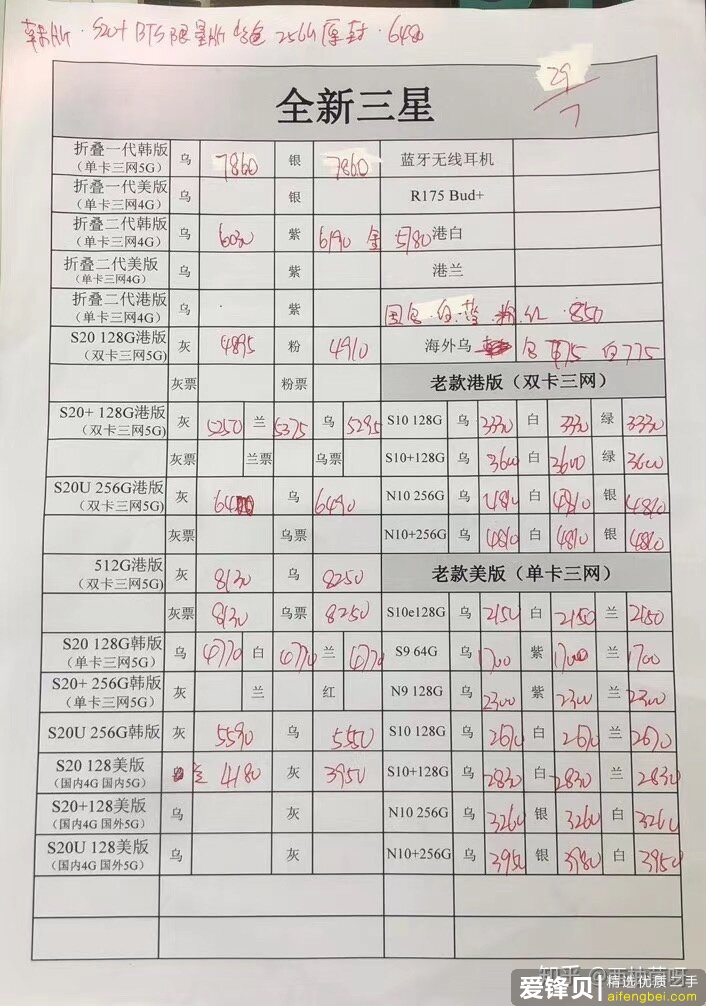 韩版·S20+ BTS限量版 紫色 256G 原封·6480
29/7
全新三星
折叠一代韩版 乌 7860 银 7860 蓝牙无线耳机
(单卡三网5G)
折叠一代美版 乌 银 R175 Bud+
(单卡三网4G)
折叠二代韩版 乌 6030 紫 6190 金 5780 港白
(单卡三网4G)
折叠二代美版 乌 紫 港兰
(单卡三网4G)
折叠二代港版 乌 紫 白 粉 红 850
(单卡三网4G)
S20 128G港版 灰 4895 粉 4910 海外乌 白775
(双卡三网5G)
灰票 粉票 老款港版（双卡三网）
S20+ 128G港版 灰 5250 兰 5375 乌 5295 S10 128G 乌 3330 白 3330 绿 3330
(双卡三网5G)
灰票 兰票 乌票 S10+128G 乌 3600 白 3600 绿 3600
S20U 256G港版 灰 乌 6490 N10 256G 乌 4810 白 4810 银 4810
(双卡三网5G)
灰票 乌票 N10+256G 乌 4810 白 4810 银 4810
512G港版 灰 8130 乌 8250 老款美版（单卡三网）
(双卡三网5G)
灰票 8130 乌票 8250 S10e128G 乌 2150 白 2150 兰 2150
S20 128G韩版 乌 4770 白 4770 兰 4770 S9 64G 乌 1700 紫 1700 兰 1700
(单卡三网5G)
S20+ 256G韩版 灰 兰 红 N9 128G 乌 2300 紫 2300 兰 2300
(单卡三网5G)
S20U 256G韩版 灰 5590 乌 5550 S10 128G 乌 2670 白 2670 兰 2670
S20 128美版 兰 4180 灰 3950 S10+128G 乌 2830 白 2830 兰 2830
(国内4G 国内5G)
S20+128美版 乌 灰 N10 256G 乌 3260 银 3260 白 3260
(国内4G 国外5G)
S20U 128美版 乌 灰 N10+256G 乌 3950 银 3980 白 3950
(国内4G 国外5G)
知乎
爱锋贝 精选优质二手
aifengbei.com